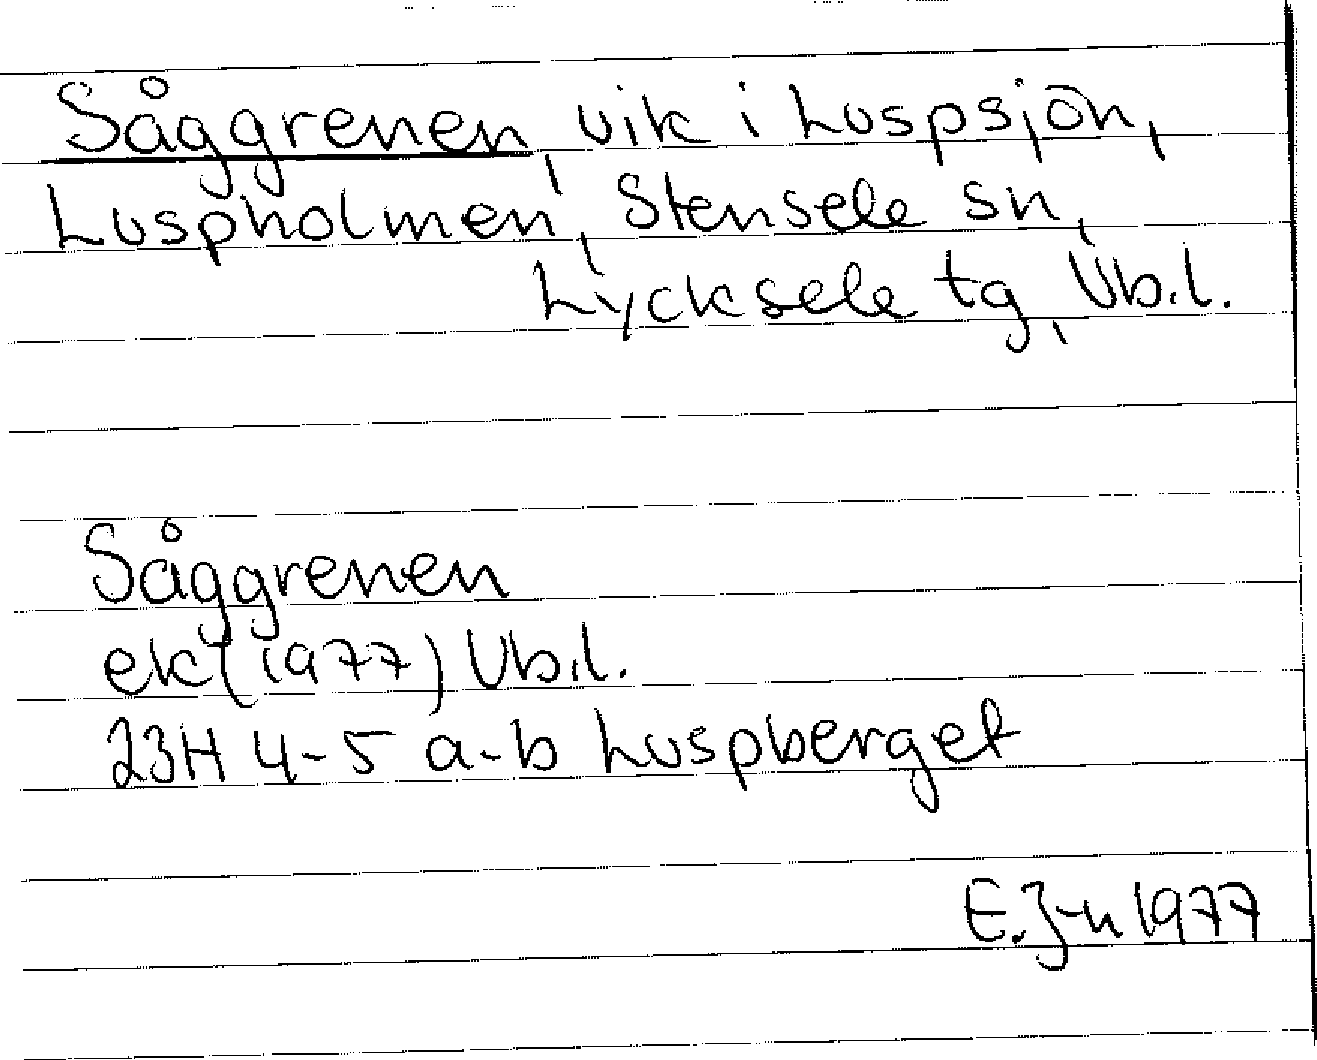 Såggrenen, vik i Luspsjön,
Luspholmen, Stensele sn,
Lycksele tg, Vb.l.
Såggrenen
ek (1977) Vb.l.
23H 4-5 a-b Luspberget
E. J-n 1977